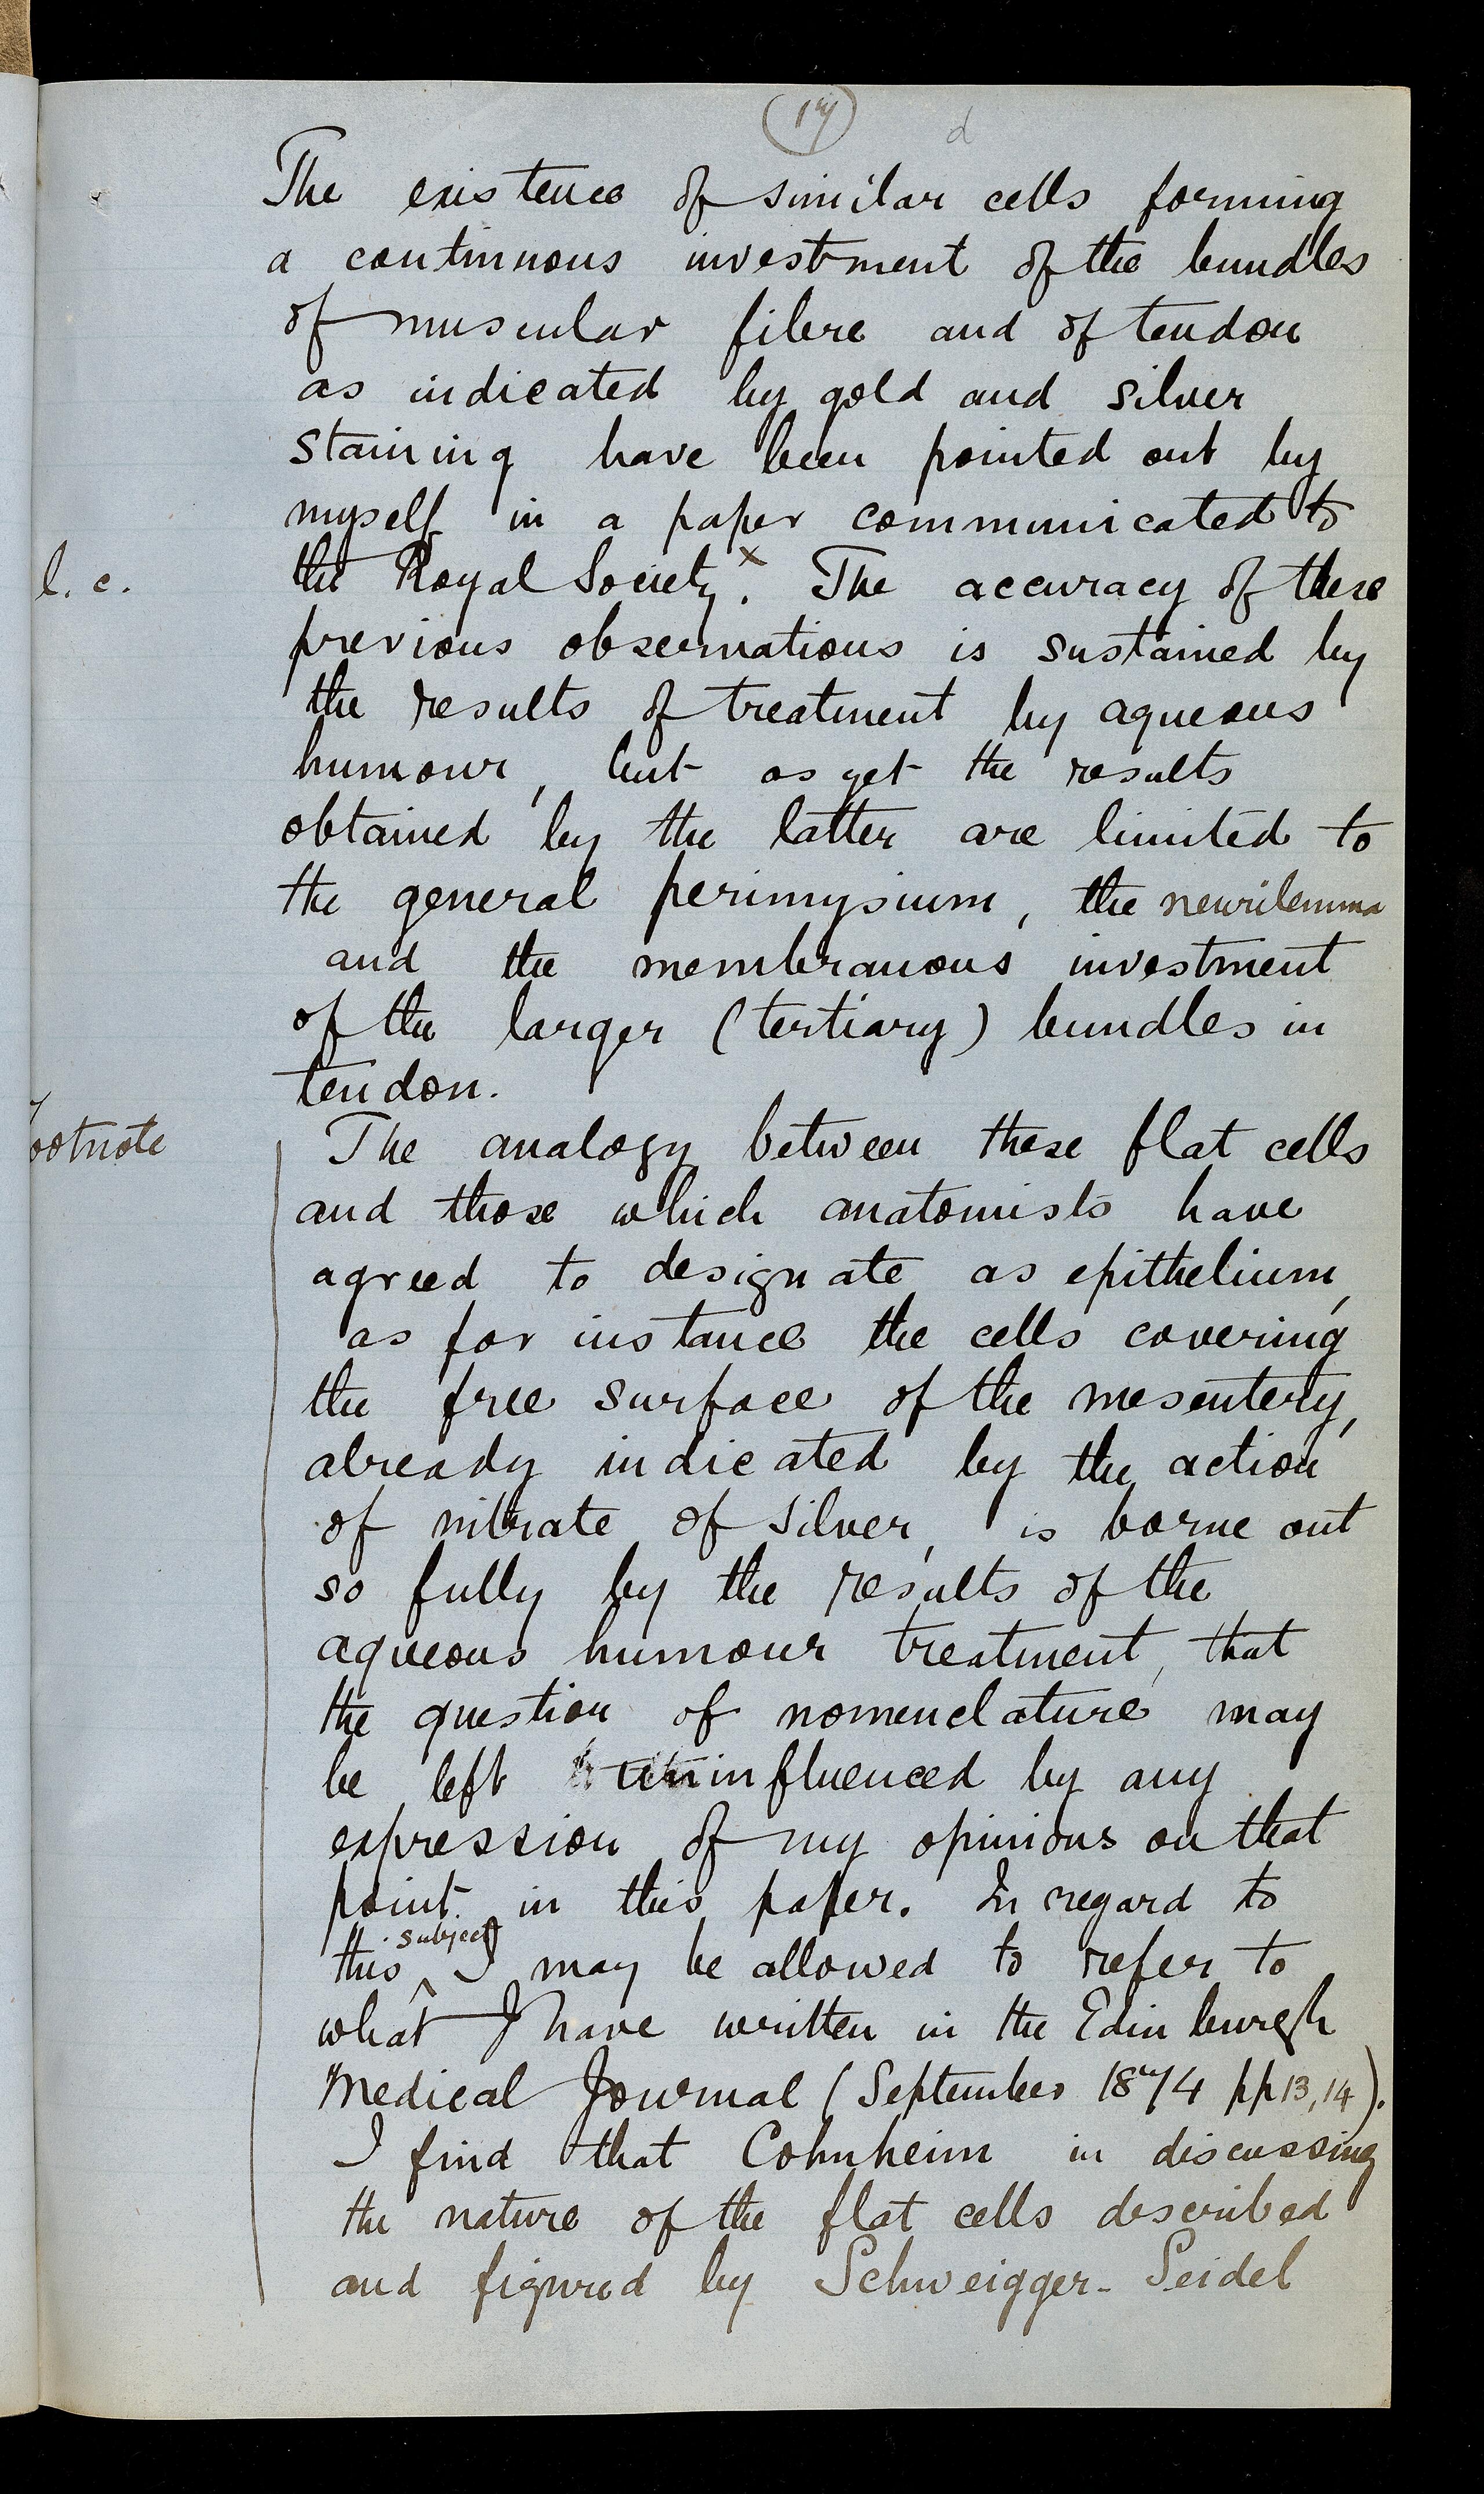 (17) d
The existence of similar cells forming
a continuous investment of the bundles
of muscular fibre and of tendon
as indicated by gold and silver
staining have been pointed out by
myself in a paper communicated to
l. c.
the Royal Society x. The accuracy of these
previous observations is sustained by
the results of treatment by aqueous
humour, but as yet the results
obtained by the latter are limited to
the general perimysium, the neurilemma
and the membranous investment
of the larger (tertiary) bundles in
tendon.
footnote
The analogy between these flat cells
and those which anatomists have
agreed to designate as epithelium,
as for instance the cells covering
the free surface of the mesentery,
already indicated by the action
of nitrate of silver, is borne out
so fully by the results of the
aqueous humour treatment, that
the question of nomenclature may
be left uninfluenced by any
expression of my opinions on that
point in this paper. In regard to
this subject I may be allowed to refer to
what I have written in the Edinburgh
Medical Journal (September 1874 pp 13, 14).
I find that Cohnheim in discussing
the nature of the flat cells described
and figured by Schweigger-Seidel